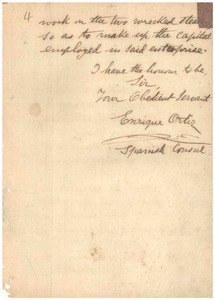 4
work on the two wrecked
so as to make up the capital
employed in said enterprise.
I have the honour to be,
Sir,
Your Obedient Servant
Enrique Ortiz
Spanish Consul